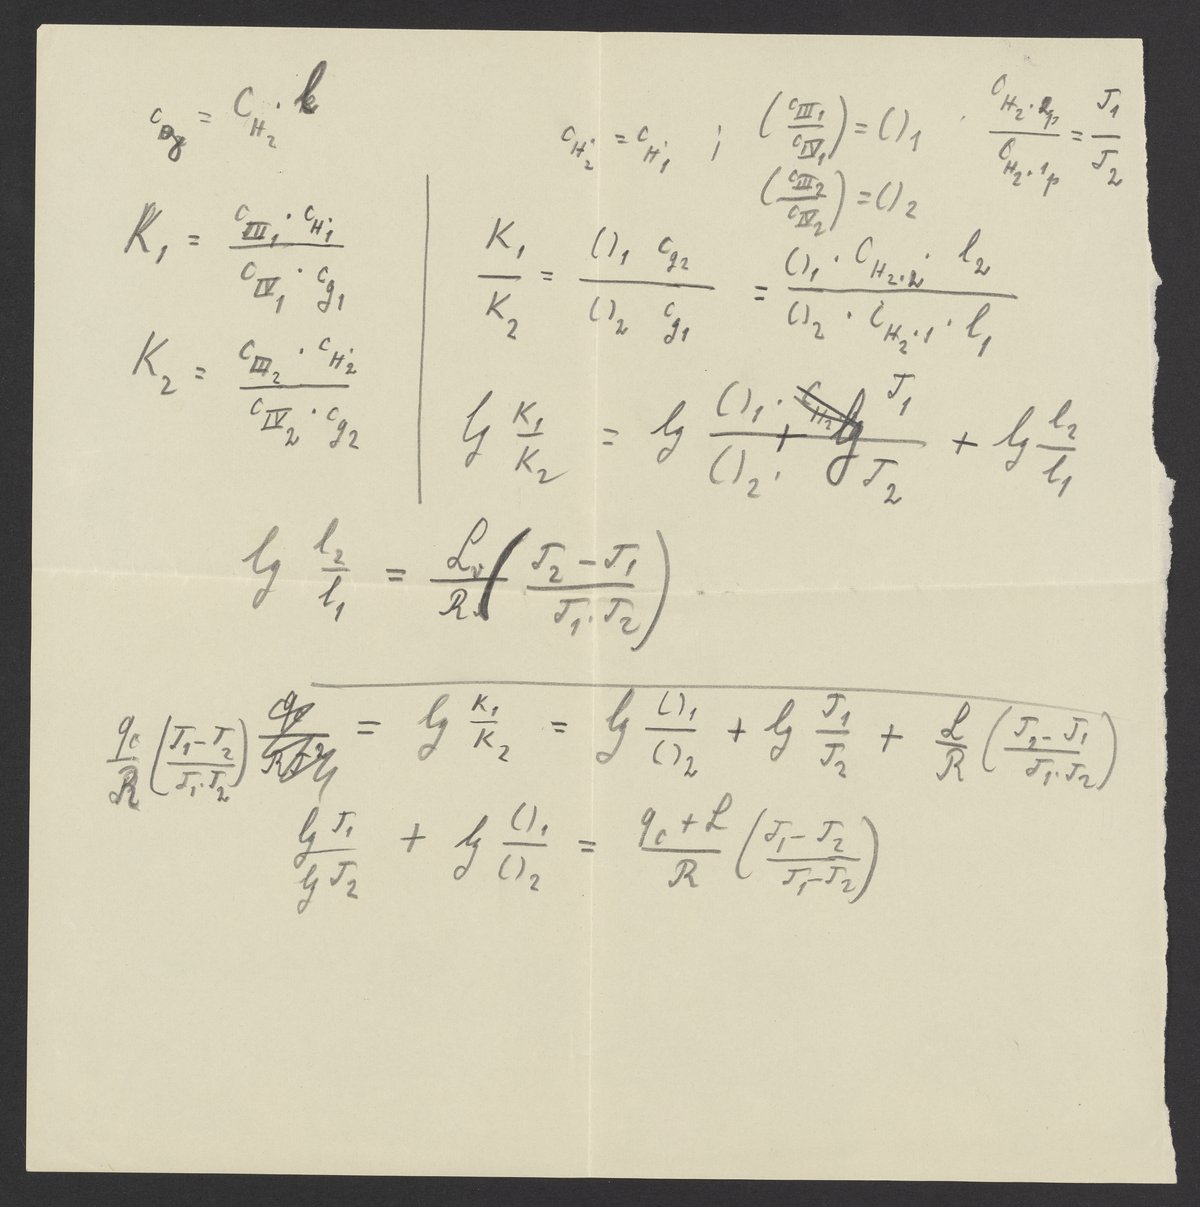 c_g = C_{H_2} · l
c_{H·_2} = c_{H·_1} ; (c_{III_1}/c_{IV_1}) = ()_1 · C_{H_2·2p}/C_{H_2·1p} = T_1/T_2
(c_{III_2}/c_{IV_2}) = ()_2
K_1 = c_{III_1} · c_{H·_1} / c_{IV_1} · c_{g_1}
K_2 = c_{III_2} · c_{H·_2} / c_{IV_2} · c_{g_2}
K_1/K_2 = ()_1 c_{g_2} / ()_2 c_{g_1} = ()_1 · C_{H_2·2} · l_2 / ()_2 · C_{H_2·1} · l_1
lg K_1/K_2 = lg ()_1/()_2 + lg T_1/T_2 + lg l_2/l_1
lg l_2/l_1 = L_v/R (T_2 – T_1 / T_1 · T_2)
q_c/R (T_1 – T_2 / T_1 · T_2) = lg K_1/K_2 = lg ()_1/()_2 + lg T_1/T_2 + L/R (T_2 – T_1 / T_1 · T_2)
lg T_1 / lg T_2 + lg ()_1/()_2 = q_c + L / R (T_1 – T_2 / T_1 – T_2)